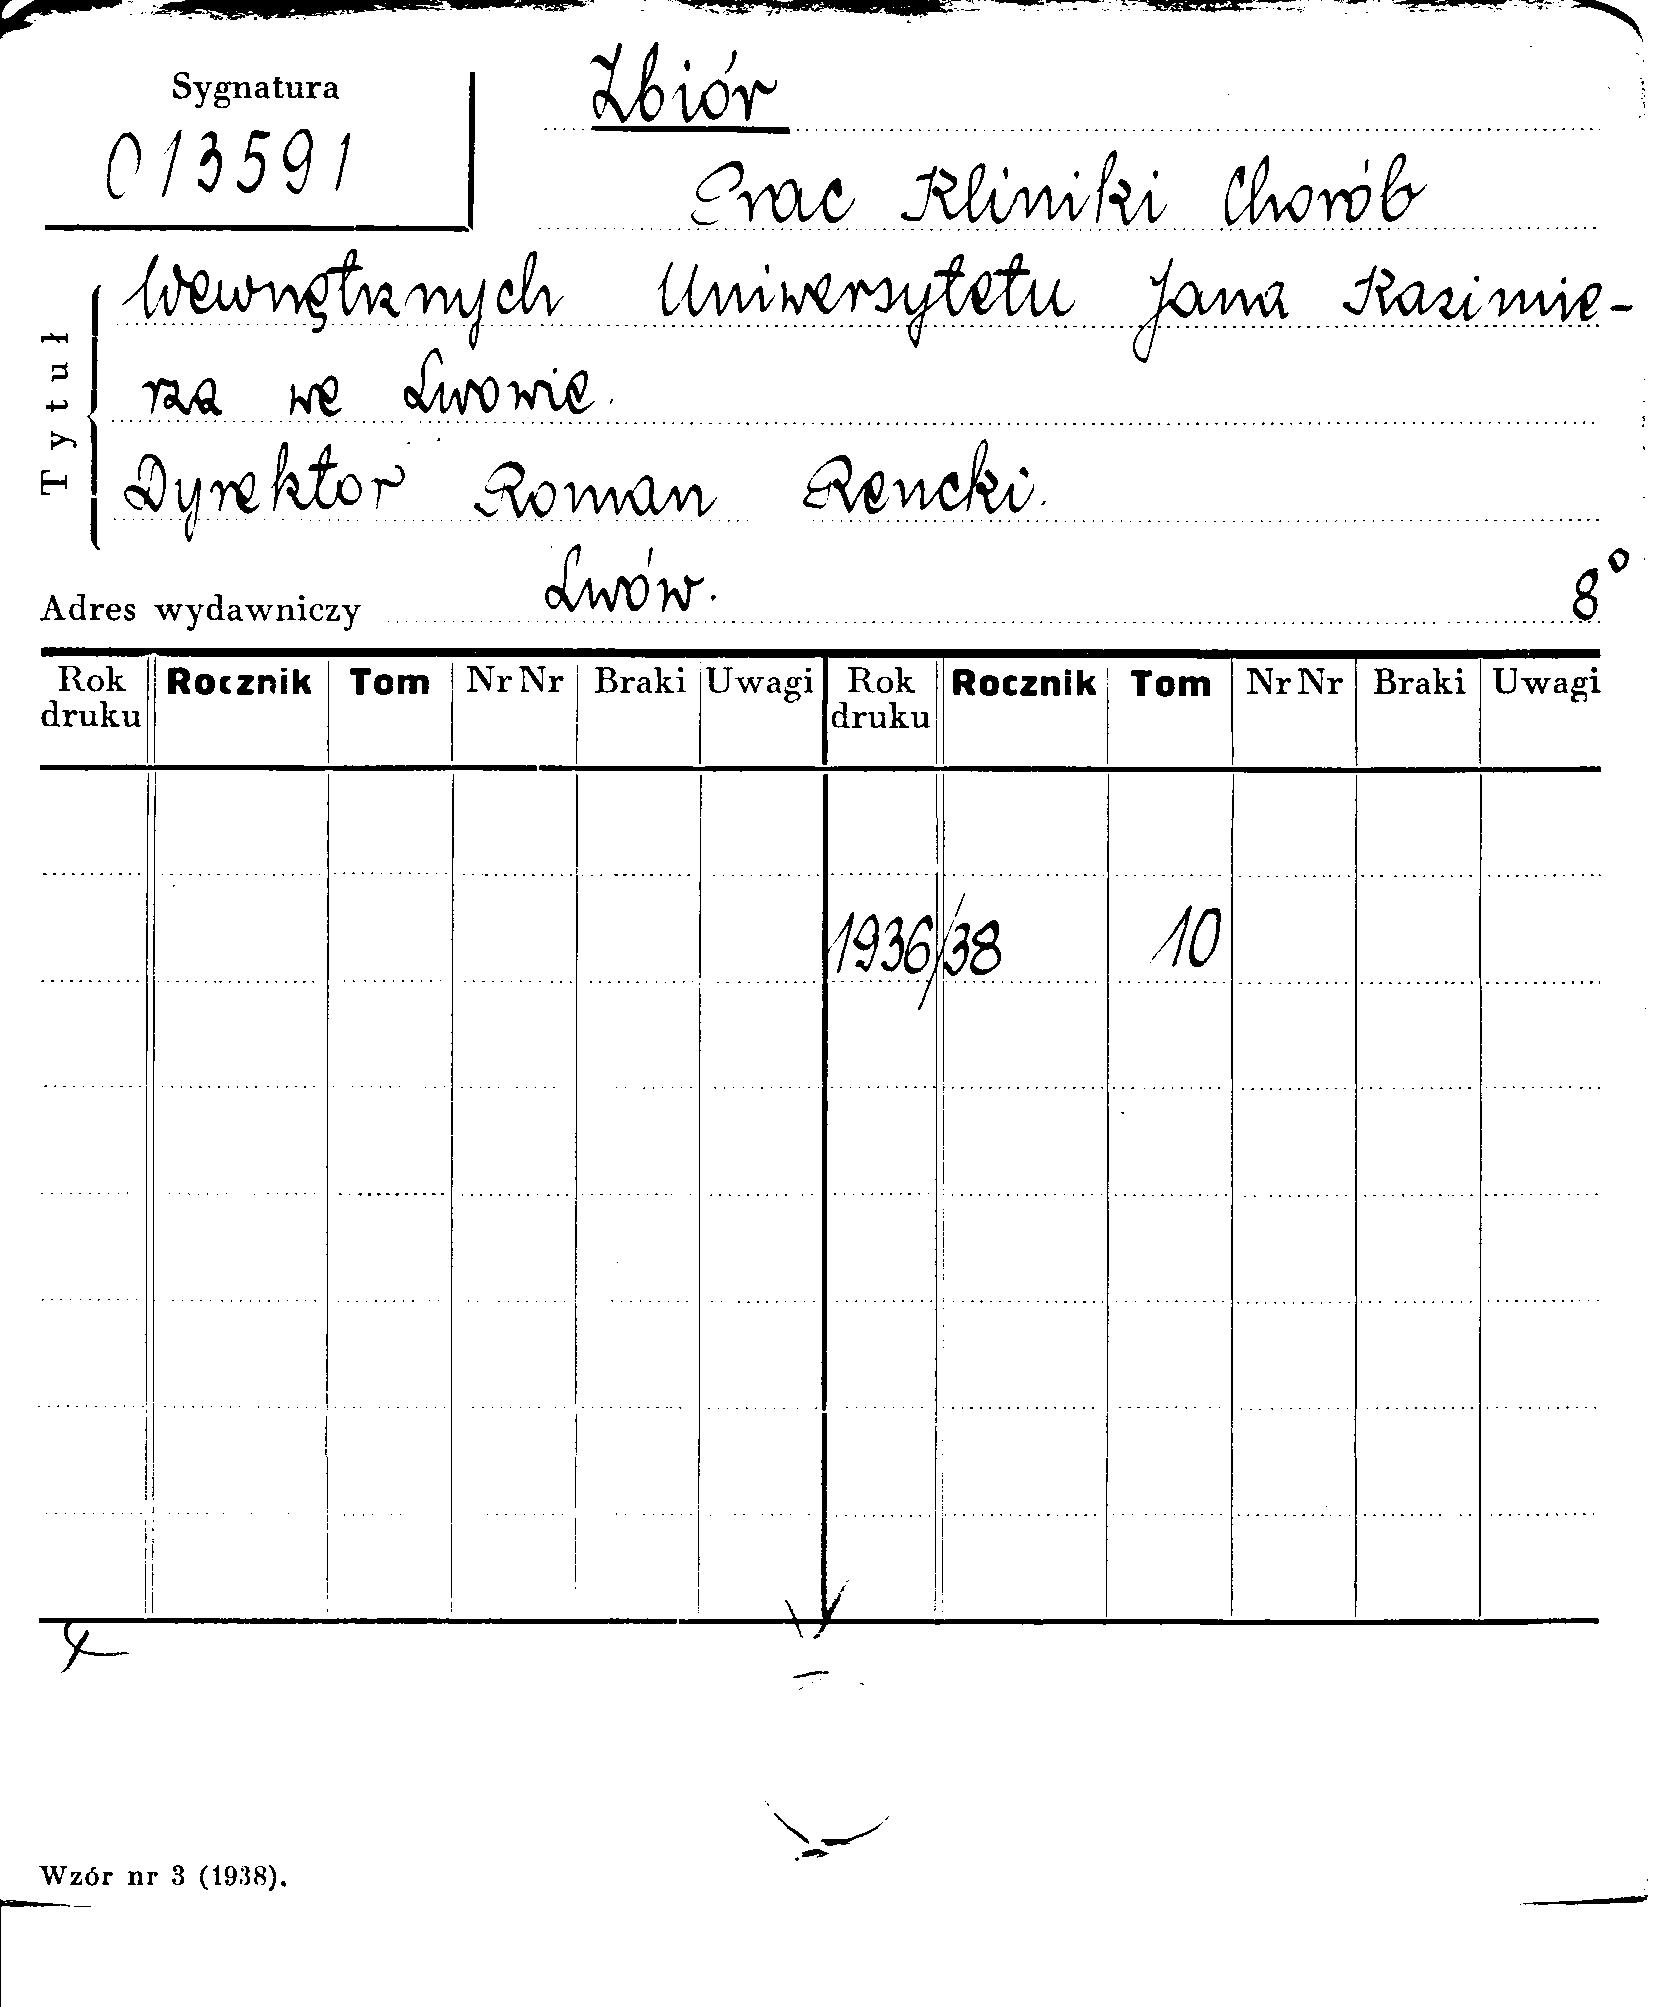 Sygnatura
013591
Zbiór
Prac Kliniki Chorób
Wewnętrznych Uniwersytetu Jana Kazimie-
rza we Lwowie.
Dyrektor Roman Rencki.
Tytuł
Lwów. 8°
Adres wydawniczy
Rok druku Rocznik Tom Nr Nr Braki Uwagi Rok druku Rocznik Tom Nr Nr Braki Uwagi
1936/38 10
Wzór nr 3 (1938).